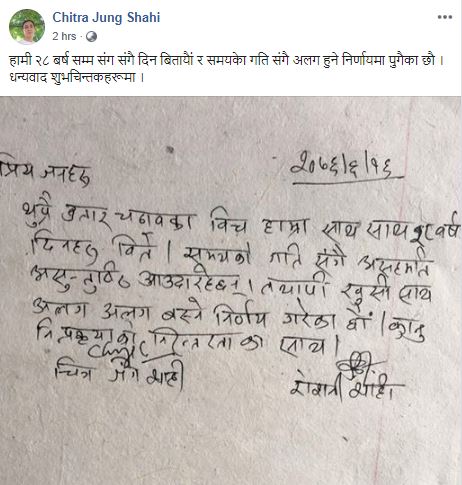 Chitra Jung Shahi
2 hrs ·
हामी २८ बर्ष सम्म संग संगै दिन बितायौं र समयको गति संगै अलग हुने निर्णयमा पुगेका छौ ।
धन्यवाद शुभचिन्तकहरूमा ।
२०७६/६/१६
प्रिय जनहरु
थुप्रै उतार चढावका विच हाम्रा साथ साथ २८ वर्ष
दिनहरु विते । समयको गति संगै असहमति
आउदा रहेछन् । तथापी खुसी साथ
अलग अलग बस्ने निर्णय गरेका छौं । कानु
नि प्रकृयाको निरन्तरता का साथ ।
चित्र जंग शाही
शाही